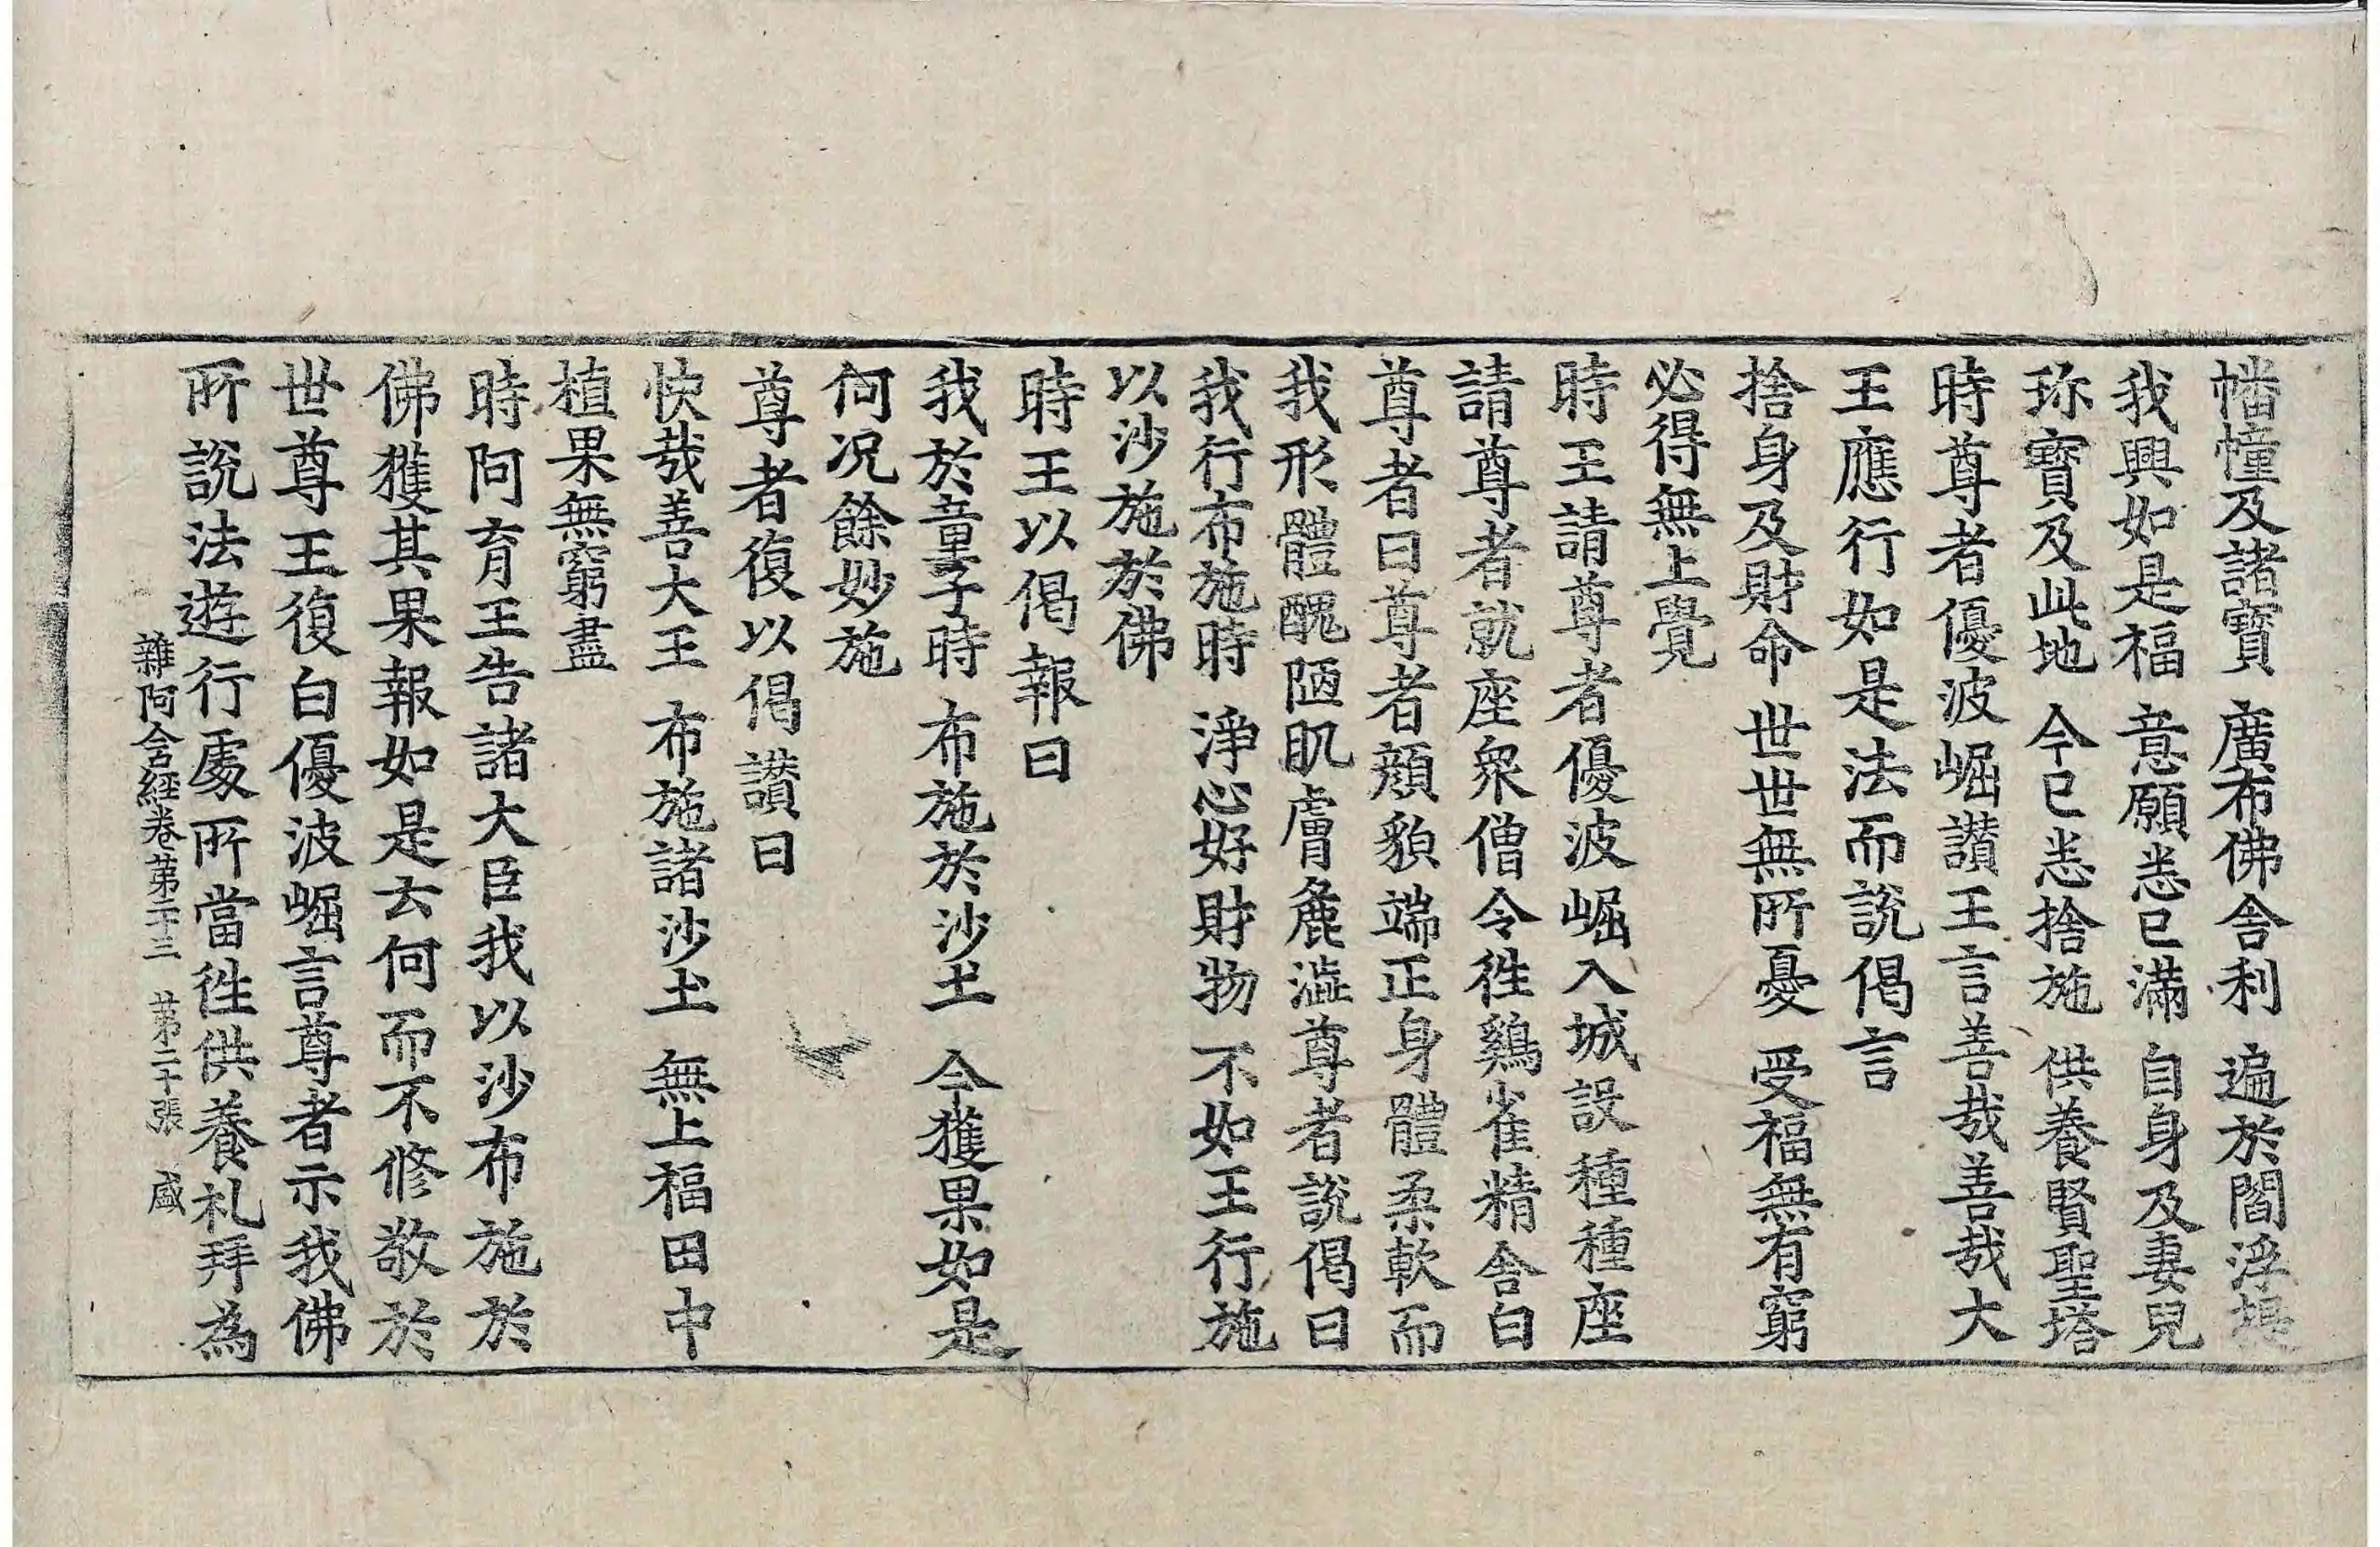 幡幢及諸寶　廣布佛舍利　遍於閻浮提
我興如是福　意願悉已滿　自身及妻兒
珎寶及此地　今已悉捨施　供養賢聖塔
時尊者優波崛讃王言善哉善哉大
王應行如是法而說偈言
捨身及財命　世世無所憂　受福無有窮
必得無上覺
時王請尊者優波崛入城設種種座
請尊者就座衆僧令徃鷄雀精舍白
尊者曰尊者顔貌端正身體柔軟而
我形體醜陋肌膚麁澁尊者說偈曰
我行布施時　淨心好財物　不如王行施
以沙施於佛
時王以偈報曰
我於童子時　布施於沙土　今獲果如是
何况餘妙施
尊者復以偈讃曰
快哉善大王　布施諸沙土　無上福田中
植果無窮盡
時阿育王告諸大臣我以沙布施於
佛獲其果報如是云何而不修敬於
世尊王復白優波崛言尊者示我佛
所說法遊行處所當徃供養礼拜為
雜阿含經卷第二十三　第二十張　盛